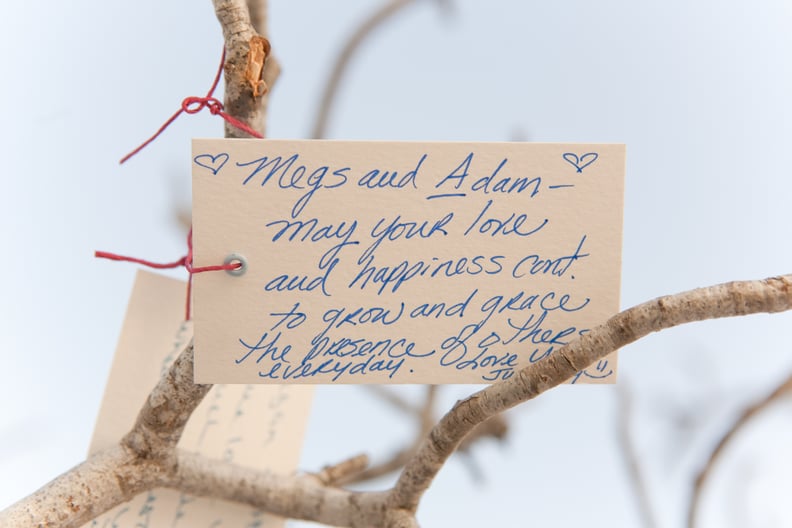 ♡ Megs and Adam - ♡
may your love
and happiness cont.
to grow and grace
the presence of others
everyday. Love